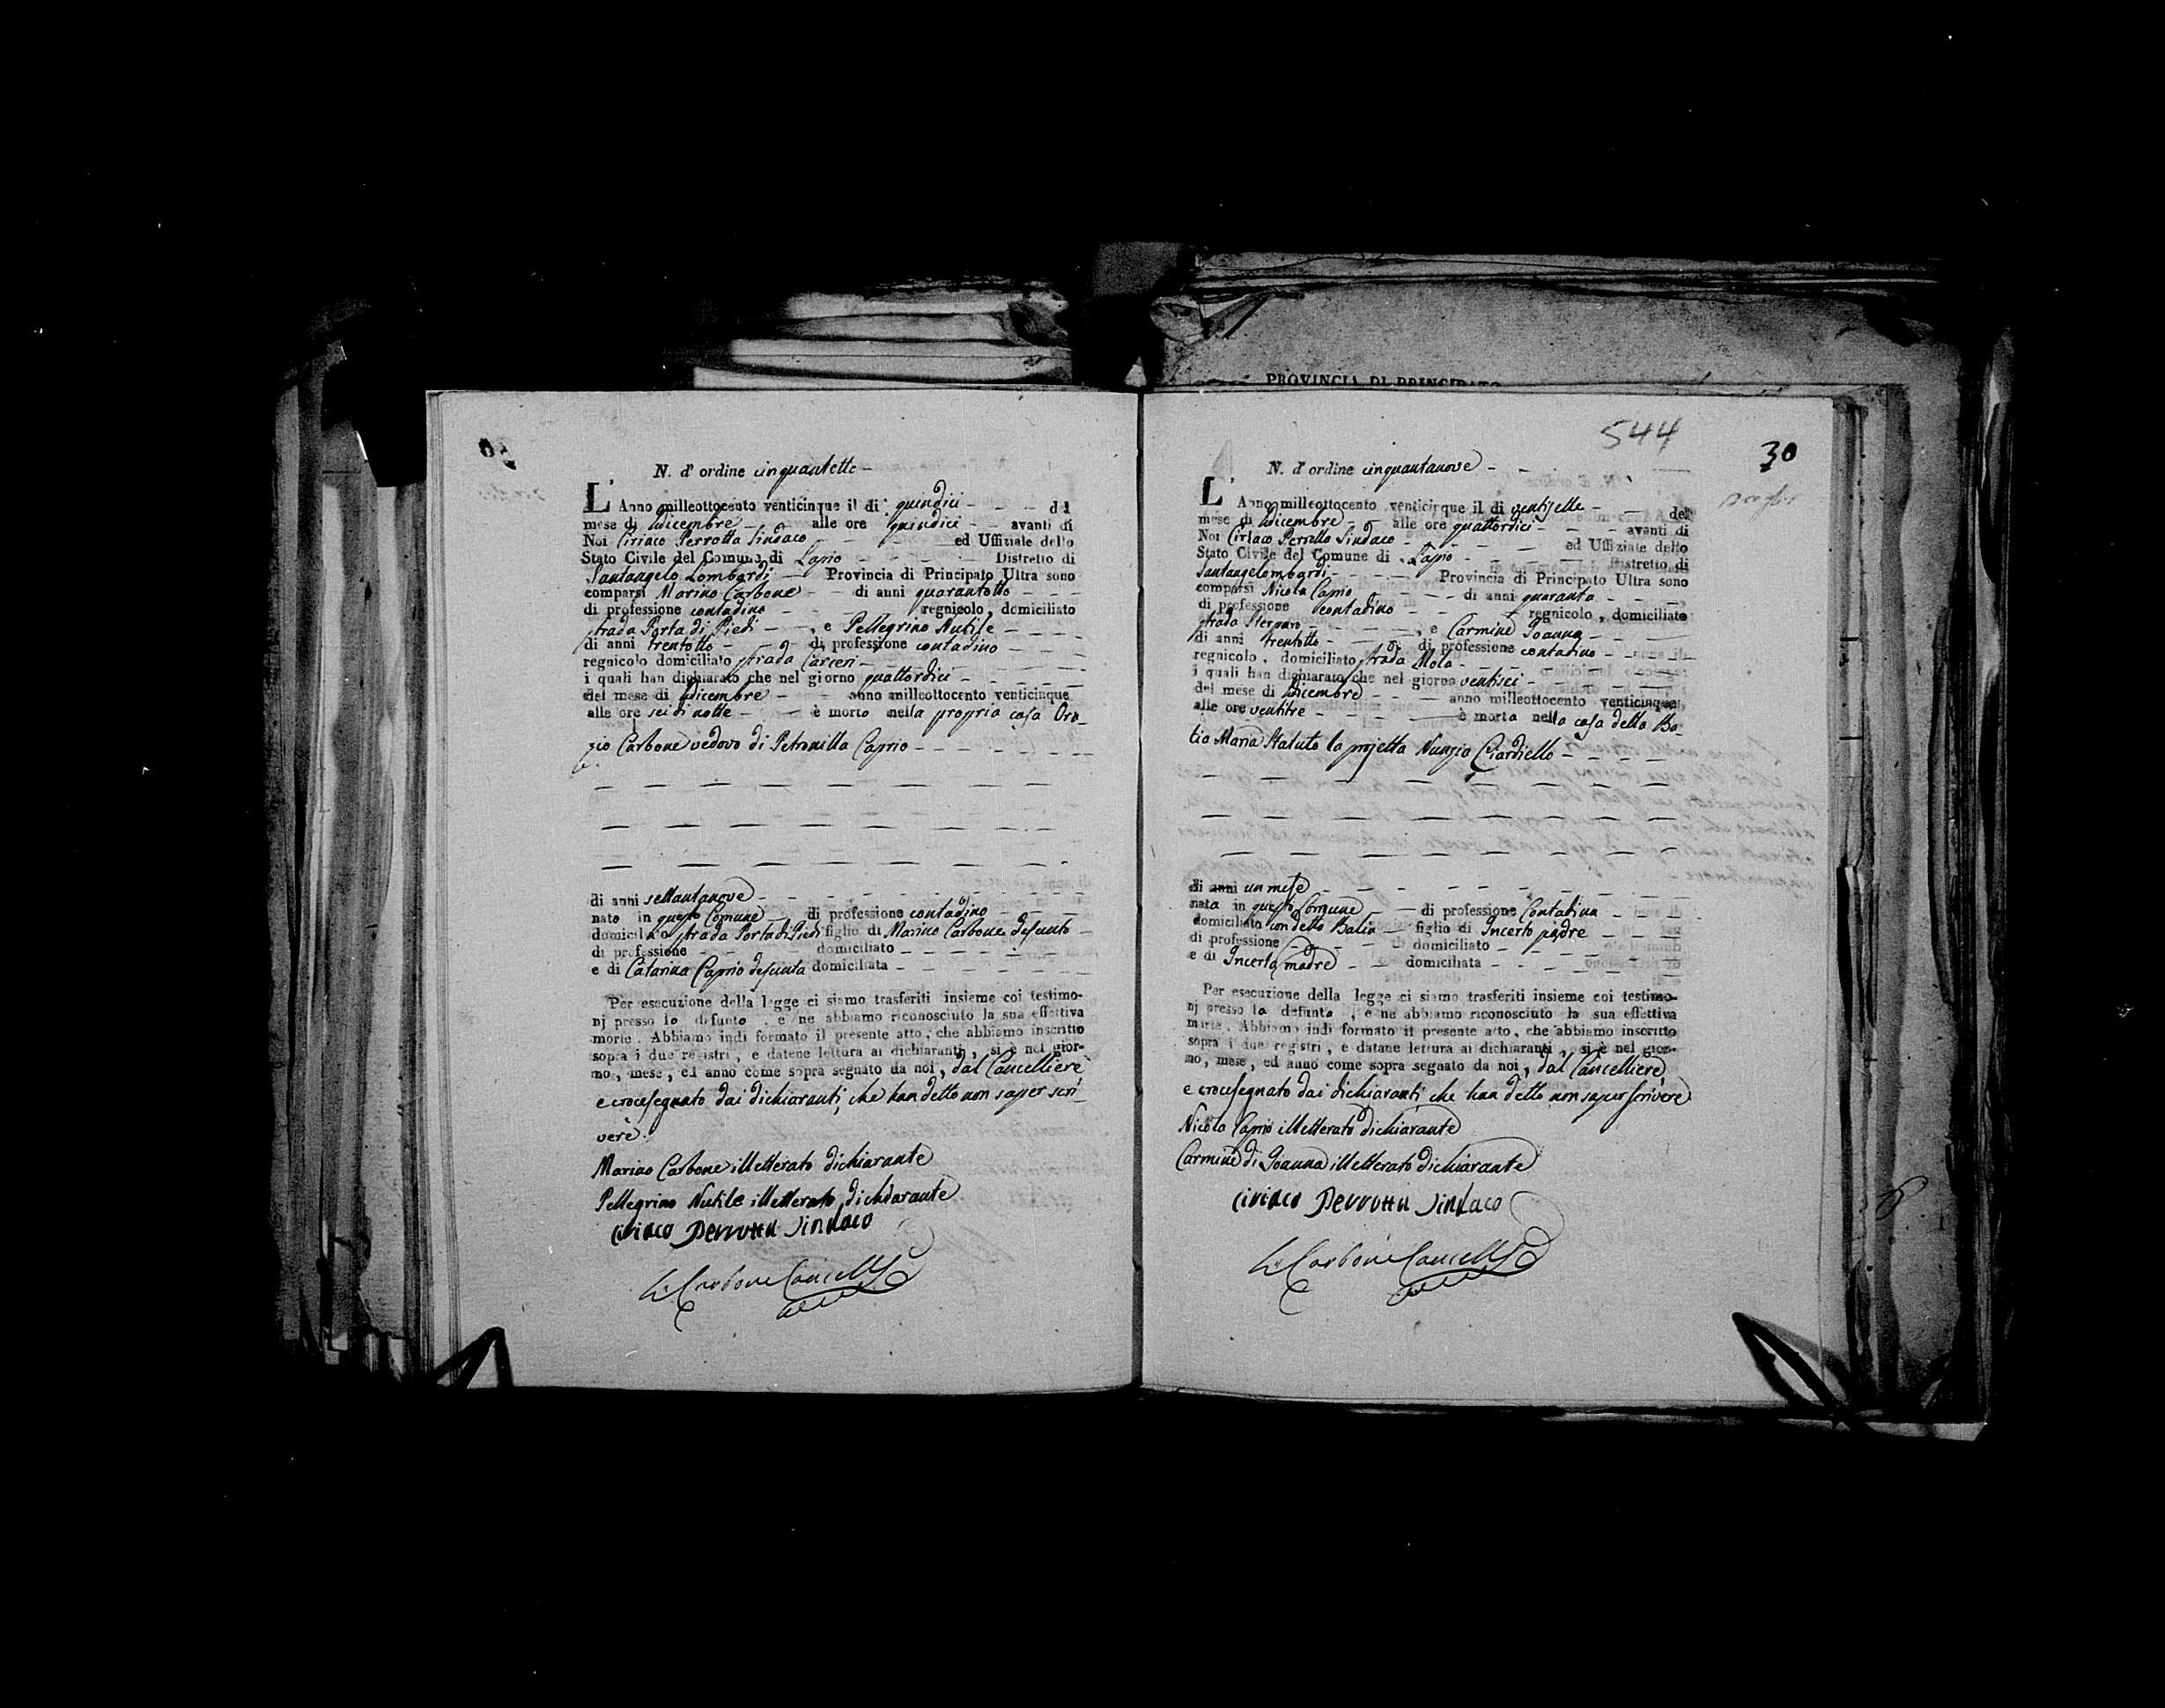 PROVINCIA DI PRINCIPATO
N. d' ordine cinquantotto
L' Anno milleottocento venticinque il di quindici del
mese di Xdicembre alle ore quindici avanti di
Noi Ciriaco Perrotta Sindaco ed Uffiziale dello
Stato Civile del Comune di Lapio Distretto di
Santangelo Lombardi Provincia di Principato Ultra sono
comparsi Marino Carbone di anni quarantotto
di professione contadino regnicolo, domiciliato
strada Porta di Piedi, e Pellegrino Nutile
di anni trentotto di professione contadino
regnicolo domiciliato strada Carceri
i quali han dichiarato che nel giorno quattordici
del mese di Xdicembre anno milleottocento venticinque
alle ore sei di notte è morto nella propria casa Ora-
zio Carbone vedovo di Petronilla Caprio
di anni settantanove
nato in questo Comune di professione contadino
domiciliato strada Porta di Piedi figlio di Marino Carbone defunto
di professione domiciliato
e di Catarina Caprio defunta domiciliata
Per esecuzione della legge ci siamo trasferiti insieme coi testimo-
nj presso lo defunto, e ne abbiamo riconosciuto la sua effettiva
morte. Abbiamo indi formato il presente atto, che abbiamo inscritto
sopra i due registri, e datene lettura ai dichiaranti, si è nel gior-
no, mese, ed anno come sopra segnato da noi, dal Cancelliere
e crocesegnato dai dichiaranti, che han detto non saper scri-
vere.
Marino Carbone illetterato dichiarante
Pellegrino Nutile illetterato dichiarante
Ciriaco Perrotta Sindaco
Carbone Cancell
544
30
N. d' ordine cinquantanove
L' Anno milleottocento venticinque il di ventisette del
mese di Xdicembre alle ore quattordici avanti di
Noi Ciriaco Perrotta Sindaco ed Uffiziale dello
Stato Civile del Comune di Lapio Distretto di
Santangelombardi Provincia di Principato Ultra sono
comparsi Nicola Caprio di anni quaranta
di professione contadino regnicolo, domiciliato
strada Sterparo, e Carmine Joanna
di anni trentotto di professione contadino
regnicolo, domiciliato strada Mola
i quali han dichiarato che nel giorno ventisei
del mese di Xdicembre anno milleottocento venticinque
alle ore ventitre è morta nella casa della Ba-
lia Maria Statuto la projetta Nunzia Ciardiello
di anni un mese
nata in questo Comune di professione Contadina
domiciliata con detta Balia figlio di Incerto padre
di professione domiciliato
e di Incerta madre domiciliata
Per esecuzione della legge ci siamo trasferiti insieme coi testimo-
nj presso la defunta, e ne abbiamo riconosciuto la sua effettiva
morte. Abbiamo indi formato il presente atto, che abbiamo inscritto
sopra i due registri, e datane lettura ai dichiaranti, si è nel gior-
no, mese, ed anno come sopra segnato da noi, dal Cancelliere
e crocesegnato dai dichiaranti che han detto non saper scrivere
Nicola Caprio illetterato dichiarante
Carmine di Joanna illetterato dichiarante
Ciriaco Perrotta Sindaco
Carbone Cancell